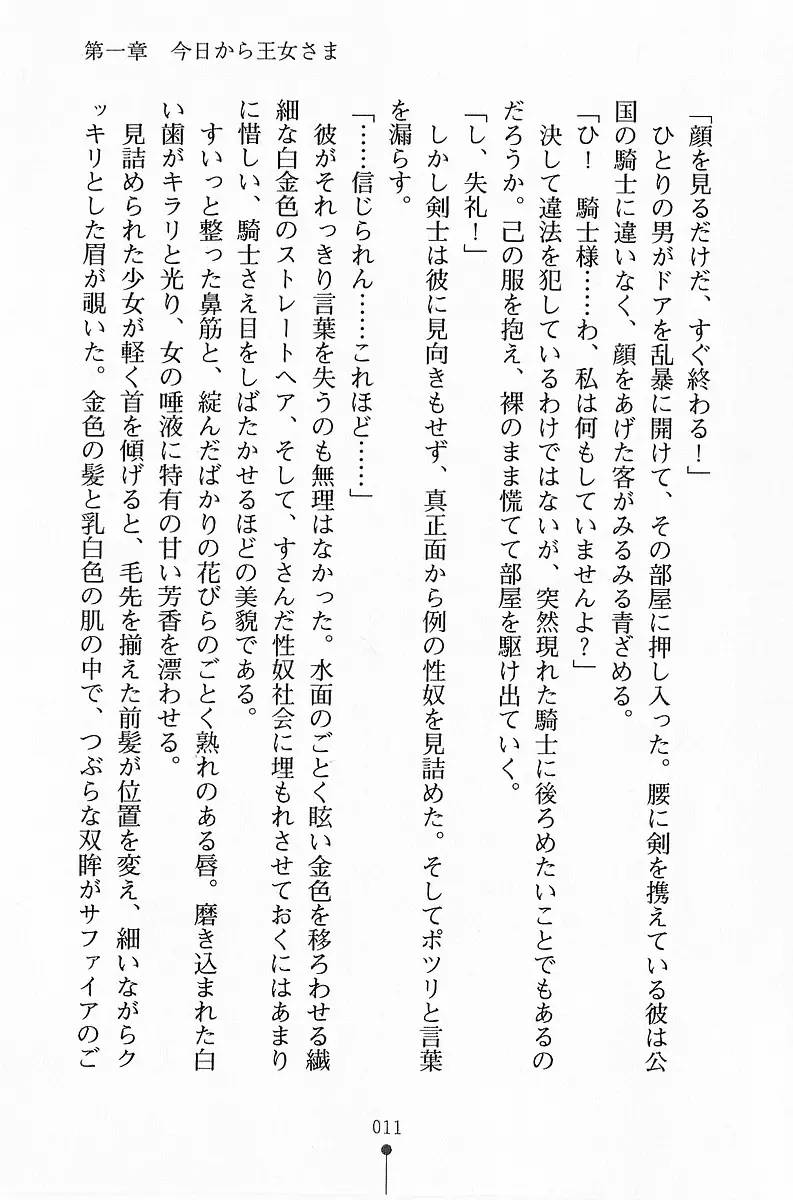 第一章　今日から王女さま
「顔を見るだけだ、すぐ終わる！」
　ひとりの男がドアを乱暴に開けて、その部屋に押し入った。腰に剣を携えている彼は公
国の騎士に違いなく、顔をあげた客がみるみる青ざめる。
「ひ！　騎士様……わ、私は何もしていませんよ？」
　決して違法を犯しているわけではないが、突然現れた騎士に後ろめたいことでもあるの
だろうか。己の服を抱え、裸のまま慌てて部屋を駆け出ていく。
「し、失礼！」
　しかし剣士は彼に見向きもせず、真正面から例の性奴を見詰めた。そしてポツリと言葉
を漏らす。
「……信じられん……これほど……」
　彼がそれっきり言葉を失うのも無理はなかった。水面のごとく眩い金色を移ろわせる繊
細な白金色のストレートヘア、そして、すさんだ性奴社会に埋もれさせておくにはあまり
に惜しい、騎士さえ目をしばたかせるほどの美貌である。
　すいっと整った鼻筋と、綻んだばかりの花びらのごとく熟れのある唇。磨き込まれた白
い歯がキラリと光り、女の唾液に特有の甘い芳香を漂わせる。
　見詰められた少女が軽く首を傾げると、毛先を揃えた前髪が位置を変え、細いながらク
ッキリとした眉が覗いた。金色の髪と乳白色の肌の中で、つぶらな双眸がサファイアのご
011